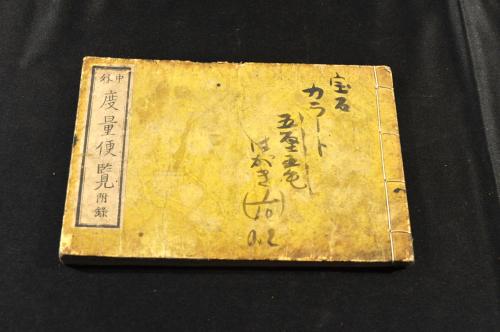 宝石
カラート
五厘五毛
はがき(1/10)
0.2
中外
度量便覧附録